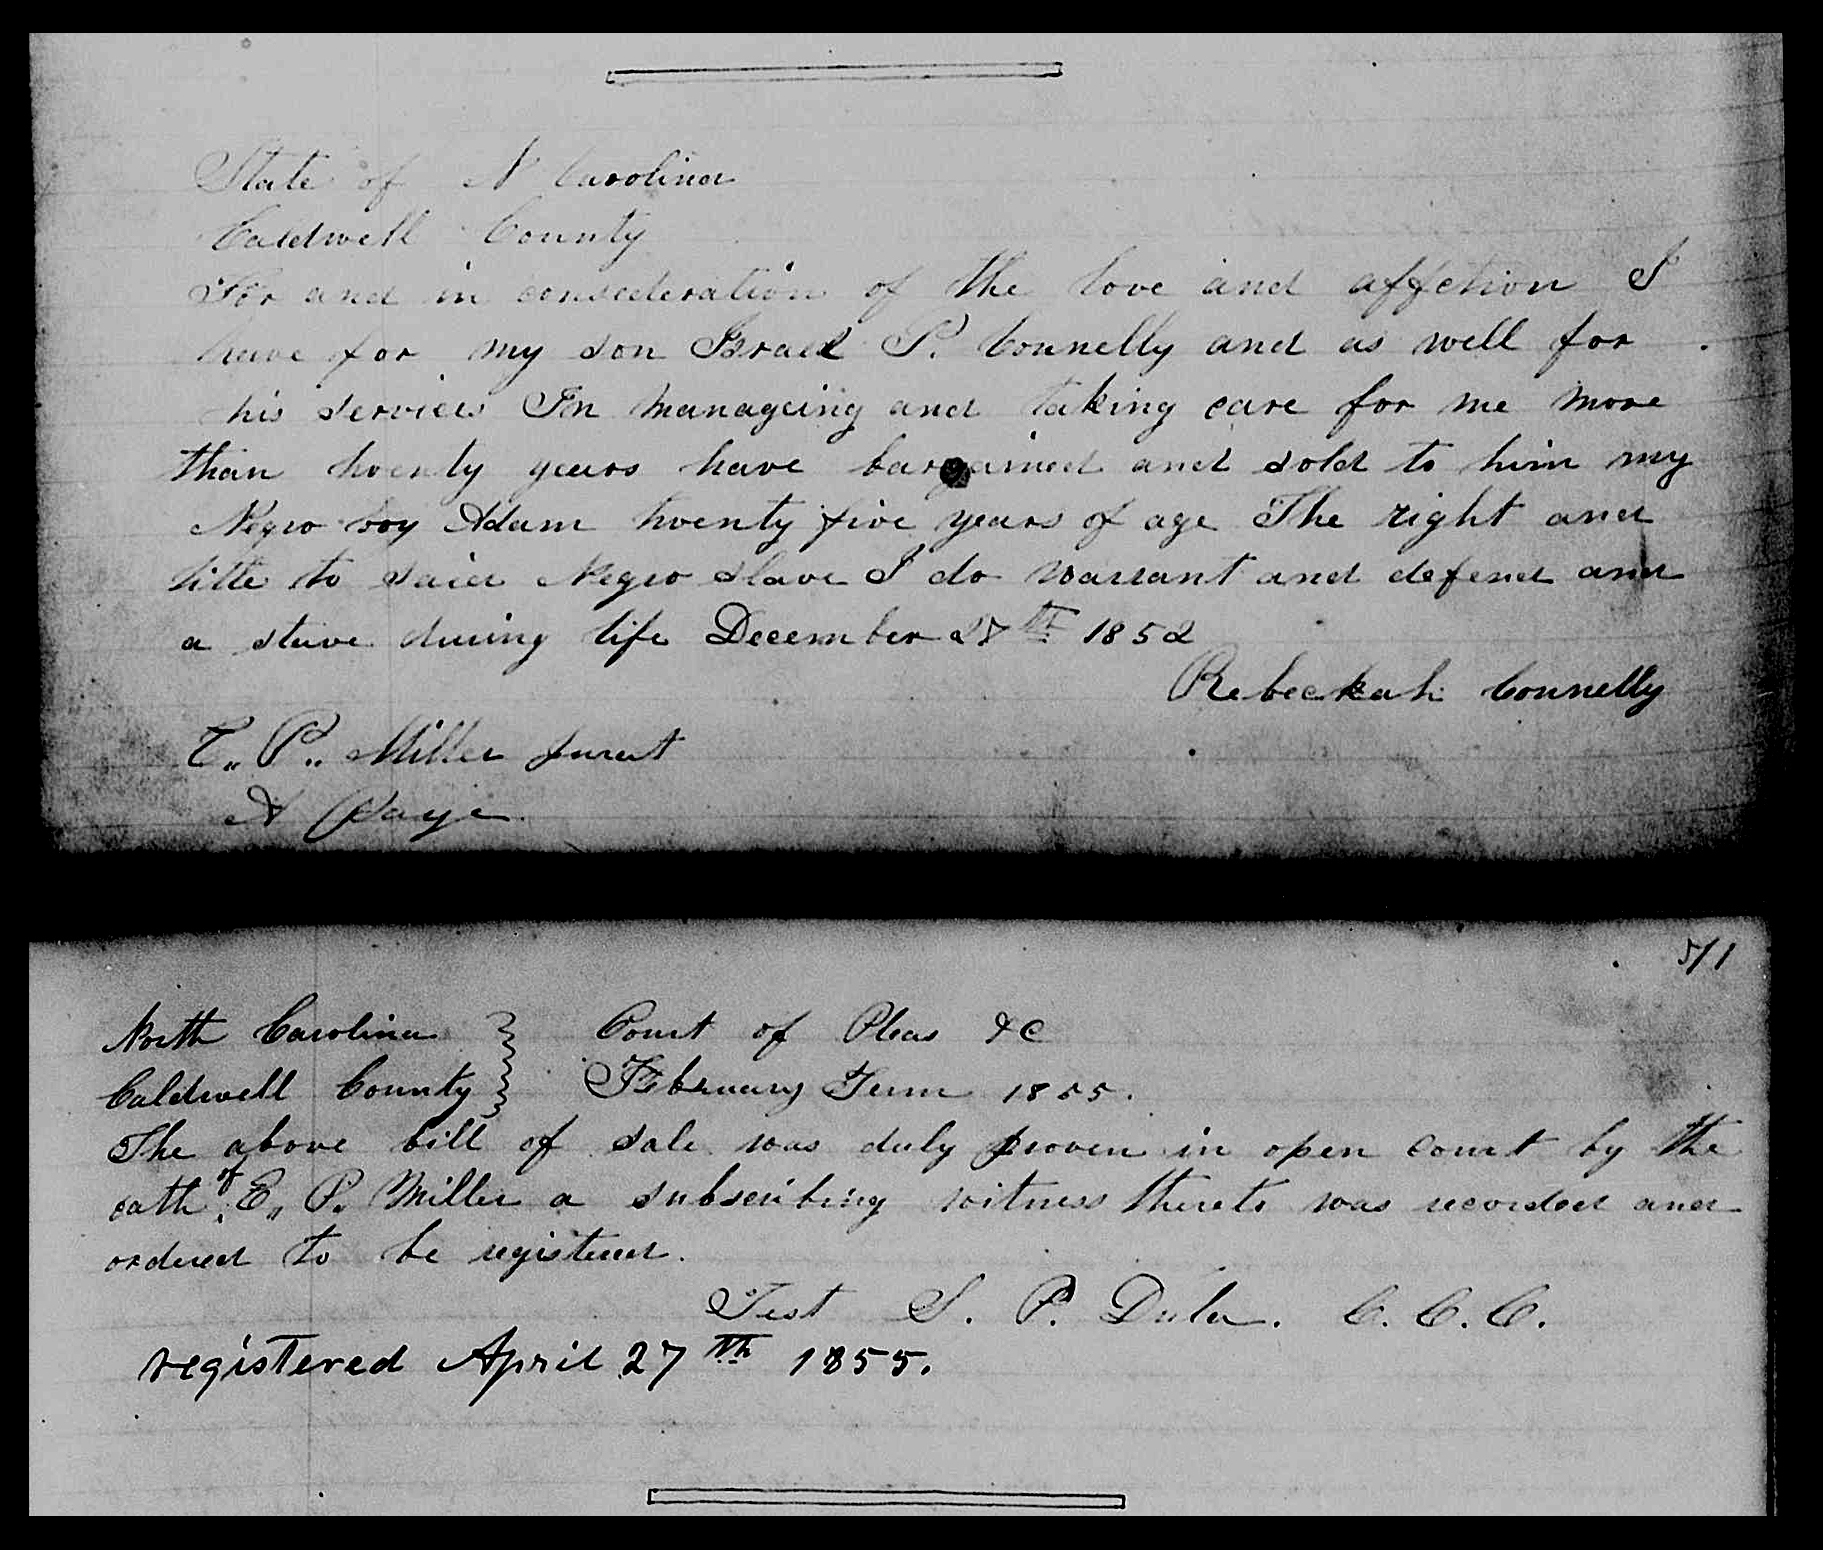 State of N Carolina
Caldwell County
For and in consederation of the love and affection I
have for my son Israel P. Connelly and as well for
his services In manageing and taking care for me more
than twenty years have bargained and sold to him my
Negro boy Adam twenty five years of age The right and
title to said Negro slave I do warrant and defend and
a slave during life December 28th 1852
Rebeckah Connelly
E. P. Miller Jurat
A Page
511
North Carolina } Court of Pleas &C
Caldwell County } February Term 1855.
The above bill of sale was duly proven in open court by the
oath of E. P. Miller a subscribing witness thereto was recorded and
ordered to be registered.
Test S. P. Dula. C. C. C.
registered April 27th 1855.